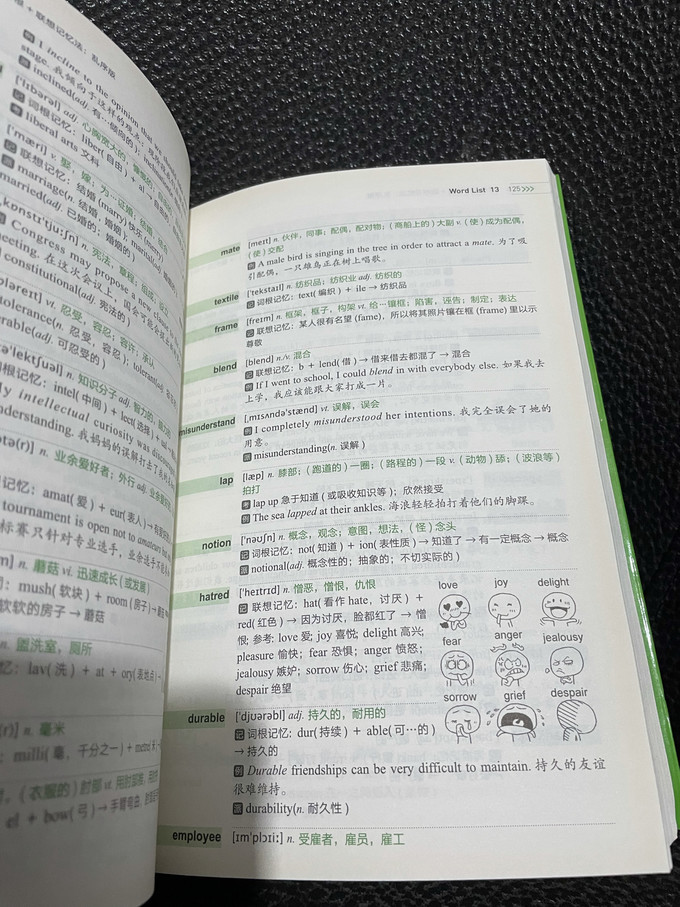 + 联想记忆法：乱序版
例 I incline to the opinion that we
stage. 我倾向于这样的观点：
源 inclined(adj. 有…倾向的)；
['lɪbərəl] adj. 心胸宽大的；
记 词根记忆：liber( 自由 ) + al →
考 liberal arts 文科
['mæri] v. 娶，嫁；为…证婚；结婚
记 联想记忆：结婚 (marry) 快乐 (merry)
源 marriage(n. 结婚，婚姻)；
married(adj. 已婚的；婚姻的)
Congress may propose a
meeting. 在这次会议上，国会可能会
constitutional(adj. 宪法的)
忍受，容忍；容许；承认
tolerance(n. 忍受，容忍)；
adj. 可忍受的)
n. 知识分子 adj. 智力的，
词根记忆：intel( 中间 ) + lect( 选择 )
intellectual curiosity was
understanding. 我妈妈的误解打击了我
n. 业余爱好者；外行 adj. 业余
amat( 爱 ) + eur( 表人 ) →
tournament is open not to amateurs but
标赛只针对专业选手，业余选手不
n. 蘑菇 vi. 迅速成长 (或发展)
mush( 软块 ) + room ( 房子 ) →
软软的房子 → 蘑菇
n. 盥洗室，厕所
lav( 洗 ) + at + ory( 表地点 )
n. 毫米
milli( 毫，千分之一 ) +
，( 衣服的 ) 肘部 vt.
el + bow( 弓 ) →
Word List 13 125
mate [meɪt] n. 伙伴，同事；配偶，配对物；( 商船上的 ) 大副 v. ( 使 ) 成为配偶，
( 使 ) 交配
例 A male bird is singing in the tree in order to attract a mate. 为了吸
引配偶，一只雄鸟正在树上唱歌。
textile ['tekstaɪl] n. 纺织品；纺织业 adj. 纺织的
记 词根记忆：text( 编织 ) + ile → 纺织品
frame [freɪm] n. 框架，框子，构架 vt. 给…镶框；陷害，诬告；制定；表达
记 联想记忆：某人很有名望 (fame)，所以将其照片镶在框 (frame) 里以示
尊敬
blend [blend] n./v. 混合
记 联想记忆：b + lend( 借 ) → 借来借去都混了 → 混合
例 If I went to school, I could blend in with everybody else. 如果我去
上学，我应该能跟大家打成一片。
misunderstand [ˌmɪsʌndə'stænd] vt. 误解，误会
例 I completely misunderstood her intentions. 我完全误会了她的
用意。
源 misunderstanding(n. 误解 )
lap [læp] n. 膝部；( 跑道的 ) 一圈；( 路程的 ) 一段 v. ( 动物 ) 舔；( 波浪等 )
拍打
考 lap up 急于知道 ( 或吸收知识等 )；欣然接受
例 The sea lapped at their ankles. 海浪轻轻拍打着他们的脚踝。
notion ['nəʊʃn] n. 概念，观念；意图，想法，( 怪 ) 念头
记 词根记忆：not( 知道 ) + ion( 表性质 ) → 知道了 → 有一定概念 → 概念
源 notional(adj. 概念性的；抽象的；不切实际的 )
hatred ['heɪtrɪd] n. 憎恶，憎恨，仇恨
记 联想记忆：hat( 看作 hate，讨厌 ) +
red( 红色 ) → 因为讨厌，脸都红了 → 憎
恨; 参考: love 爱; joy 喜悦; delight 高兴;
pleasure 愉快; fear 恐惧; anger 愤怒;
jealousy 嫉妒; sorrow 伤心; grief 悲痛;
despair 绝望
love joy delight
fear anger jealousy
sorrow grief despair
durable ['djʊərəbl] adj. 持久的，耐用的
记 词根记忆：dur( 持续 ) + able( 可…的 )
→ 持久的
例 Durable friendships can be very difficult to maintain. 持久的友谊
很难维持。
源 durability(n. 耐久性 )
employee [ɪm'plɔɪiː] n. 受雇者，雇员，雇工